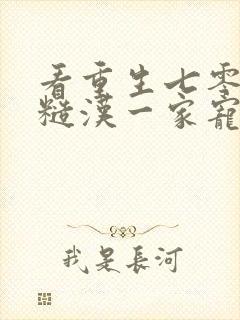 看重生七零
糙漢一家寵
我是長河